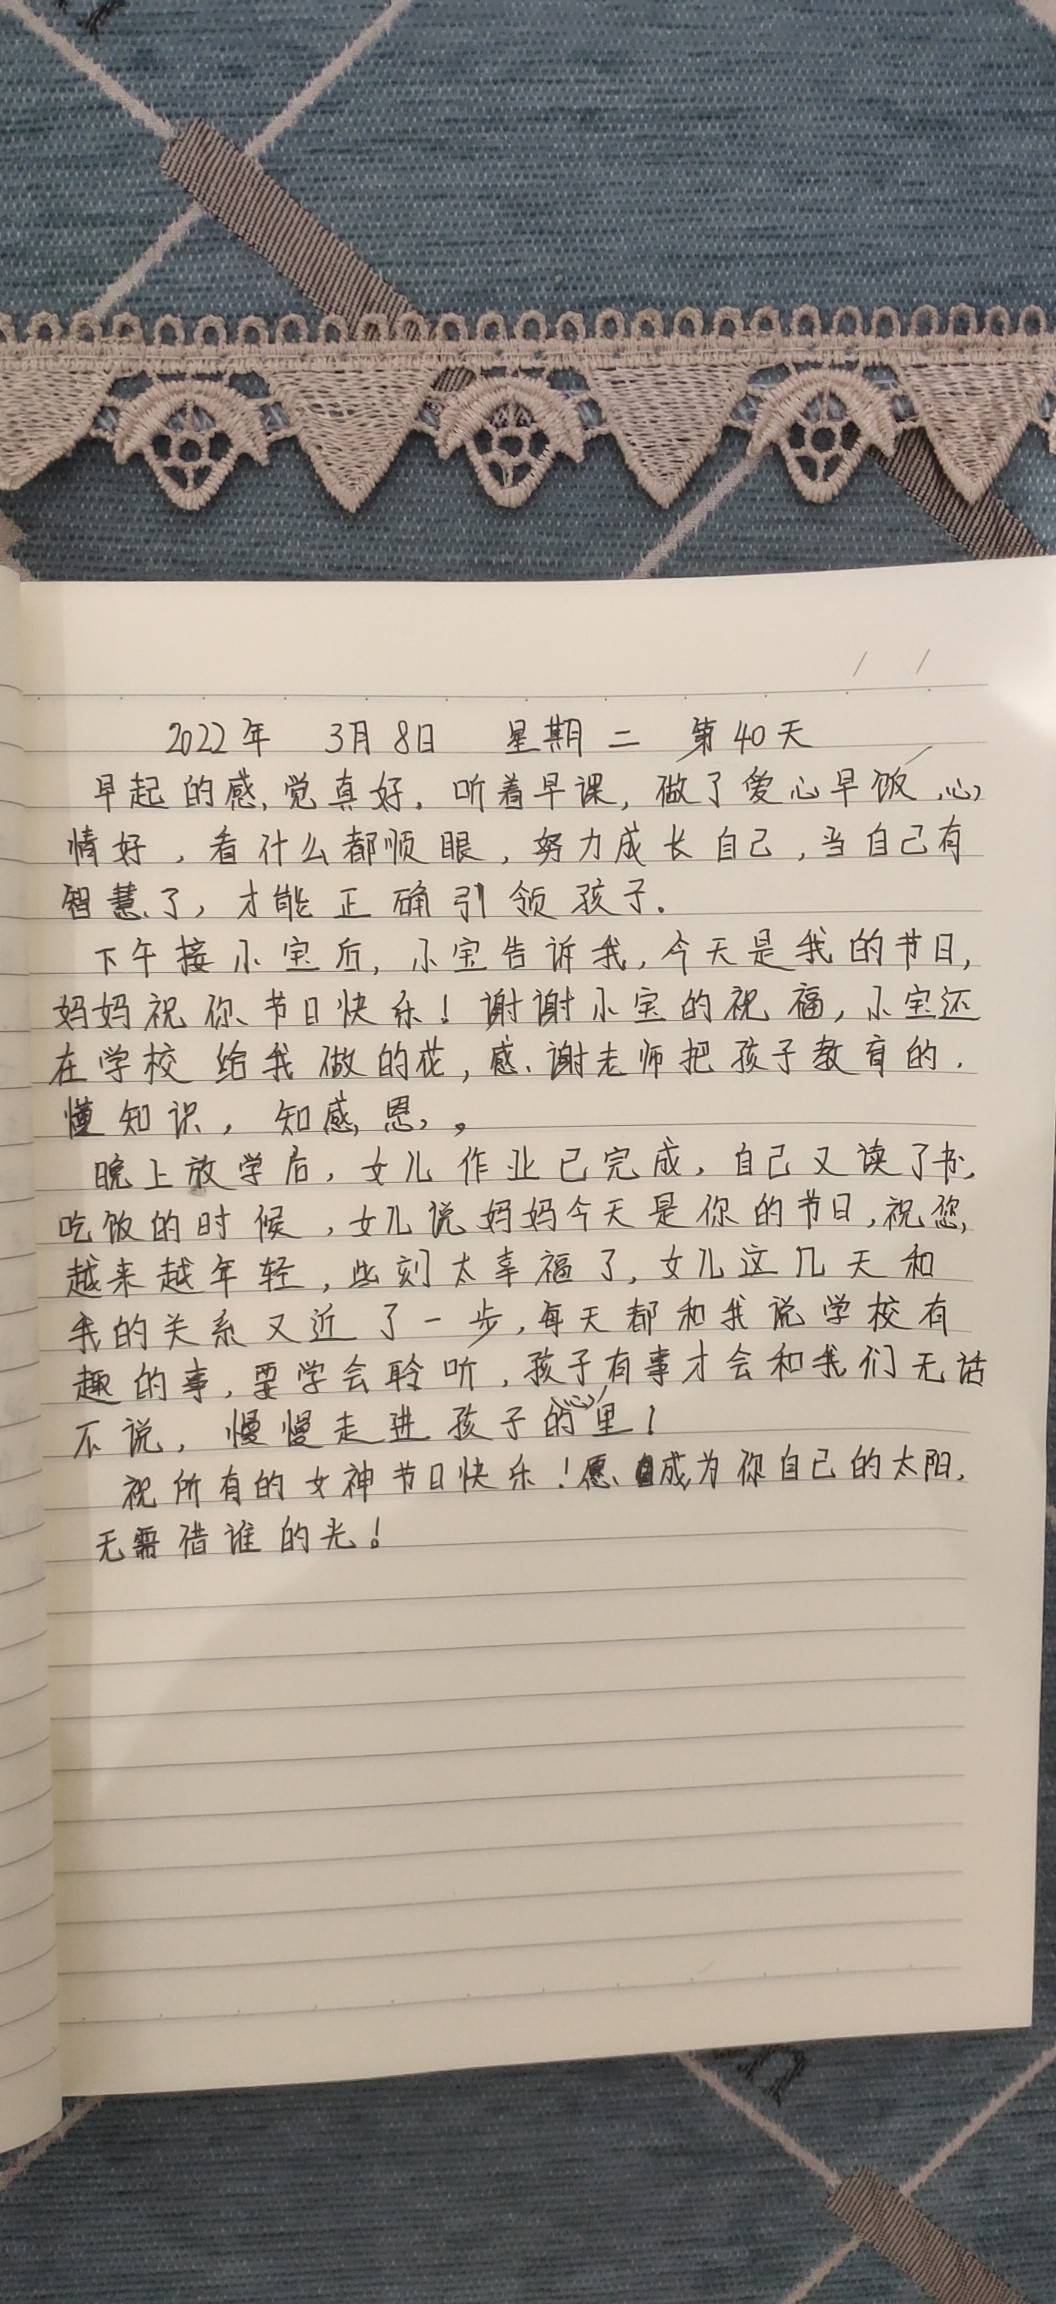 2022年 3月8日 星期二 第40天
早起的感觉真好，听着早课，做了爱心早饭，心
情好，看什么都顺眼，努力成长自己，当自己有
智慧了，才能正确引领孩子。
下午接小宝后，小宝告诉我，今天是我的节日，
妈妈祝你节日快乐！谢谢小宝的祝福，小宝还
在学校给我做的花，感谢老师把孩子教育的，
懂知识，知感恩，，
晚上放学后，女儿作业已完成，自己又读了书，
吃饭的时候，女儿说妈妈今天是你的节日，祝您，
越来越年轻，此刻太幸福了，女儿这几天和
我的关系又近了一步，每天都和我说学校有
趣的事，要学会聆听，孩子有事才会和我们无话
不说，慢慢走进孩子的心里！
祝所有的女神节日快乐！愿成为你自己的太阳，
无需借谁的光！